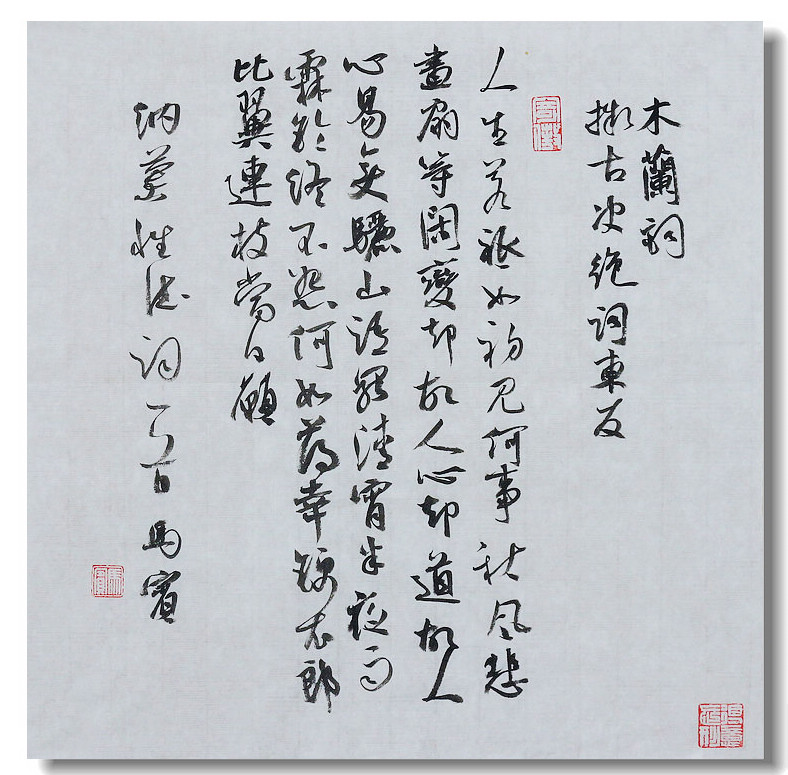 木蘭詞
擬古决絶詞柬友
人生若衹如初見何事秋風悲
畫扇等閑變却故人心却道故人
心易變驪山語罷清宵半夜雨
霖鈴終不怨何如薄幸錦衣郎
比翼連枝當日願
納蘭性德詞一首馬賓